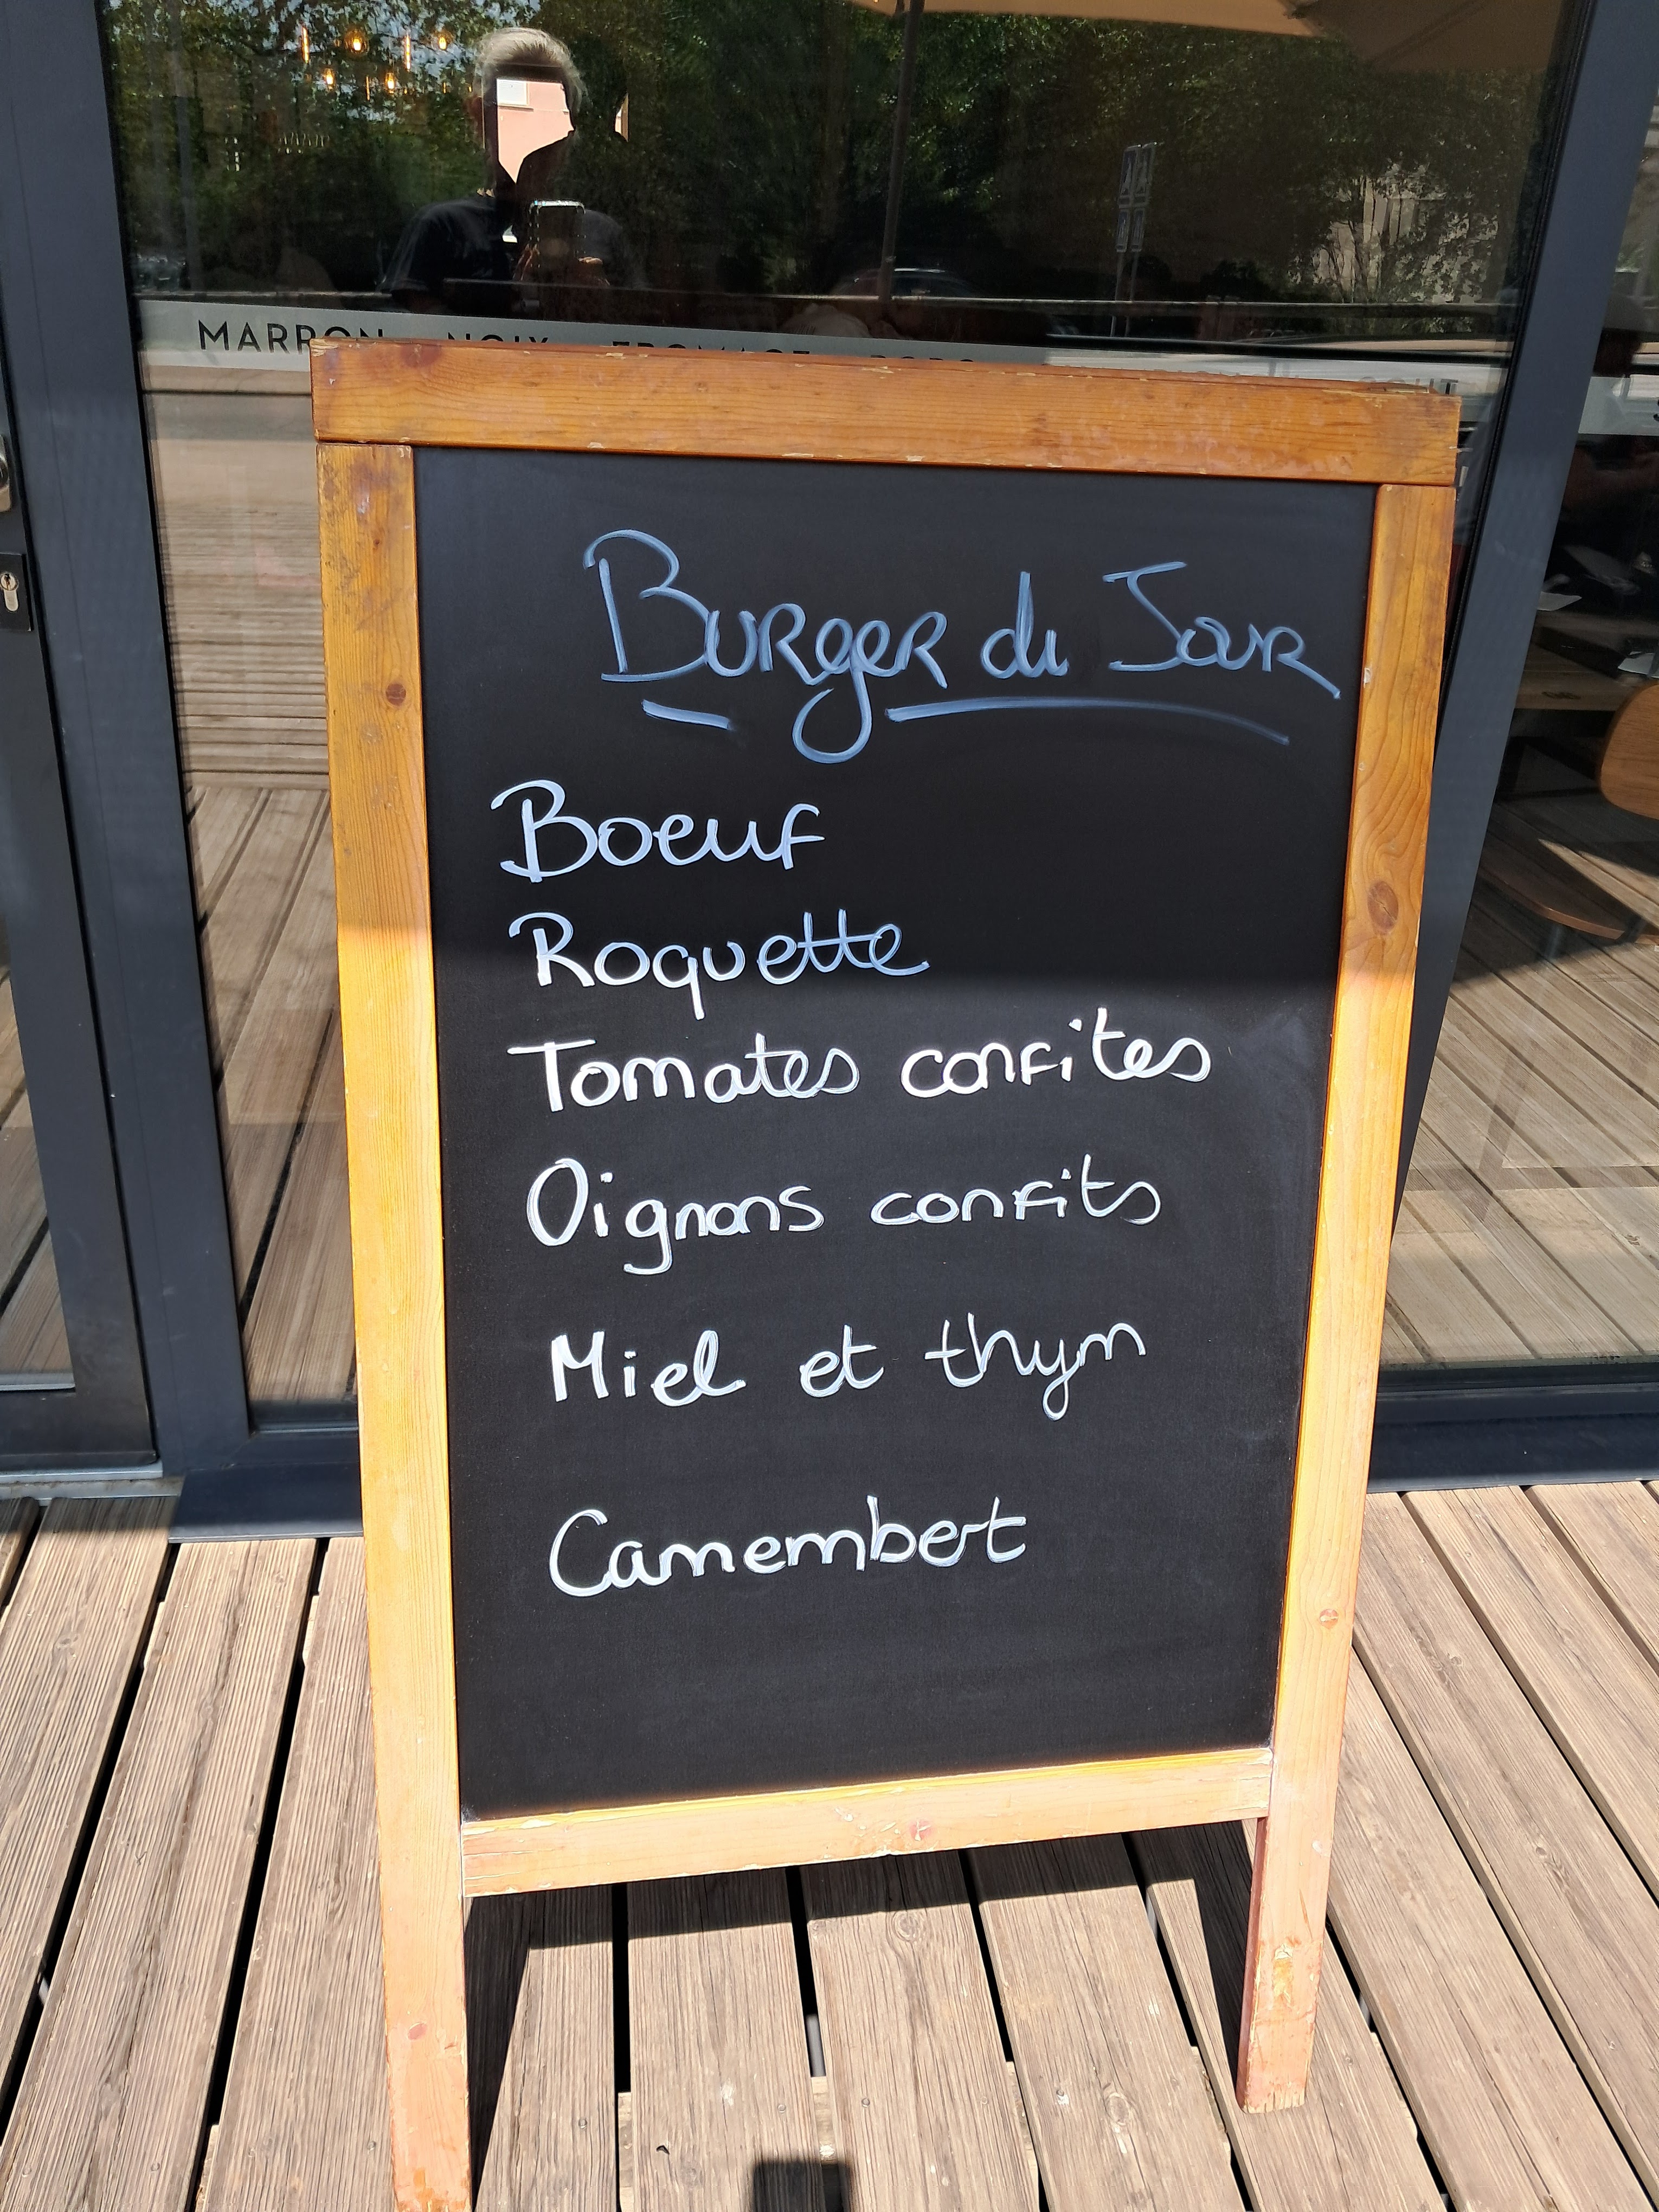 MARRON NOIX FROMAGE
Burger du Jour
Boeuf
Roquette
Tomates confites
Oignons confits
Miel et thym
Camembert